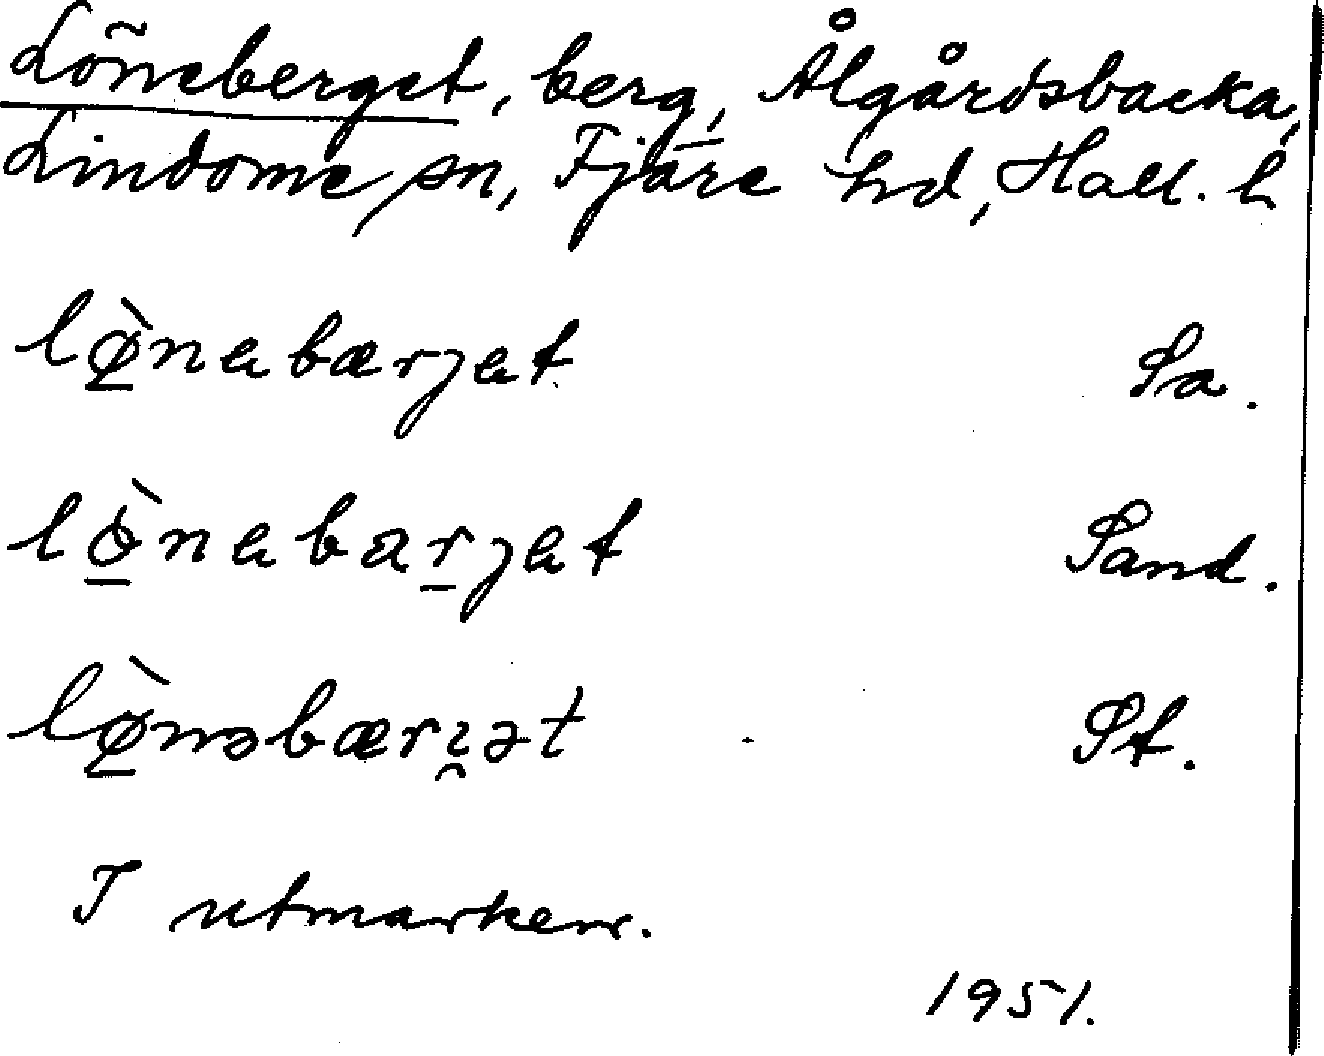 Löneberget, berg, Ålgårdsbacka,
Lindome sn, Fjäre hd, Hall. l
lø̠̀nabærjat Sa.
lò̠nabar̠jat Sand.
lø̠̀nəbæri̯ət St.
I utmarken.
1951.